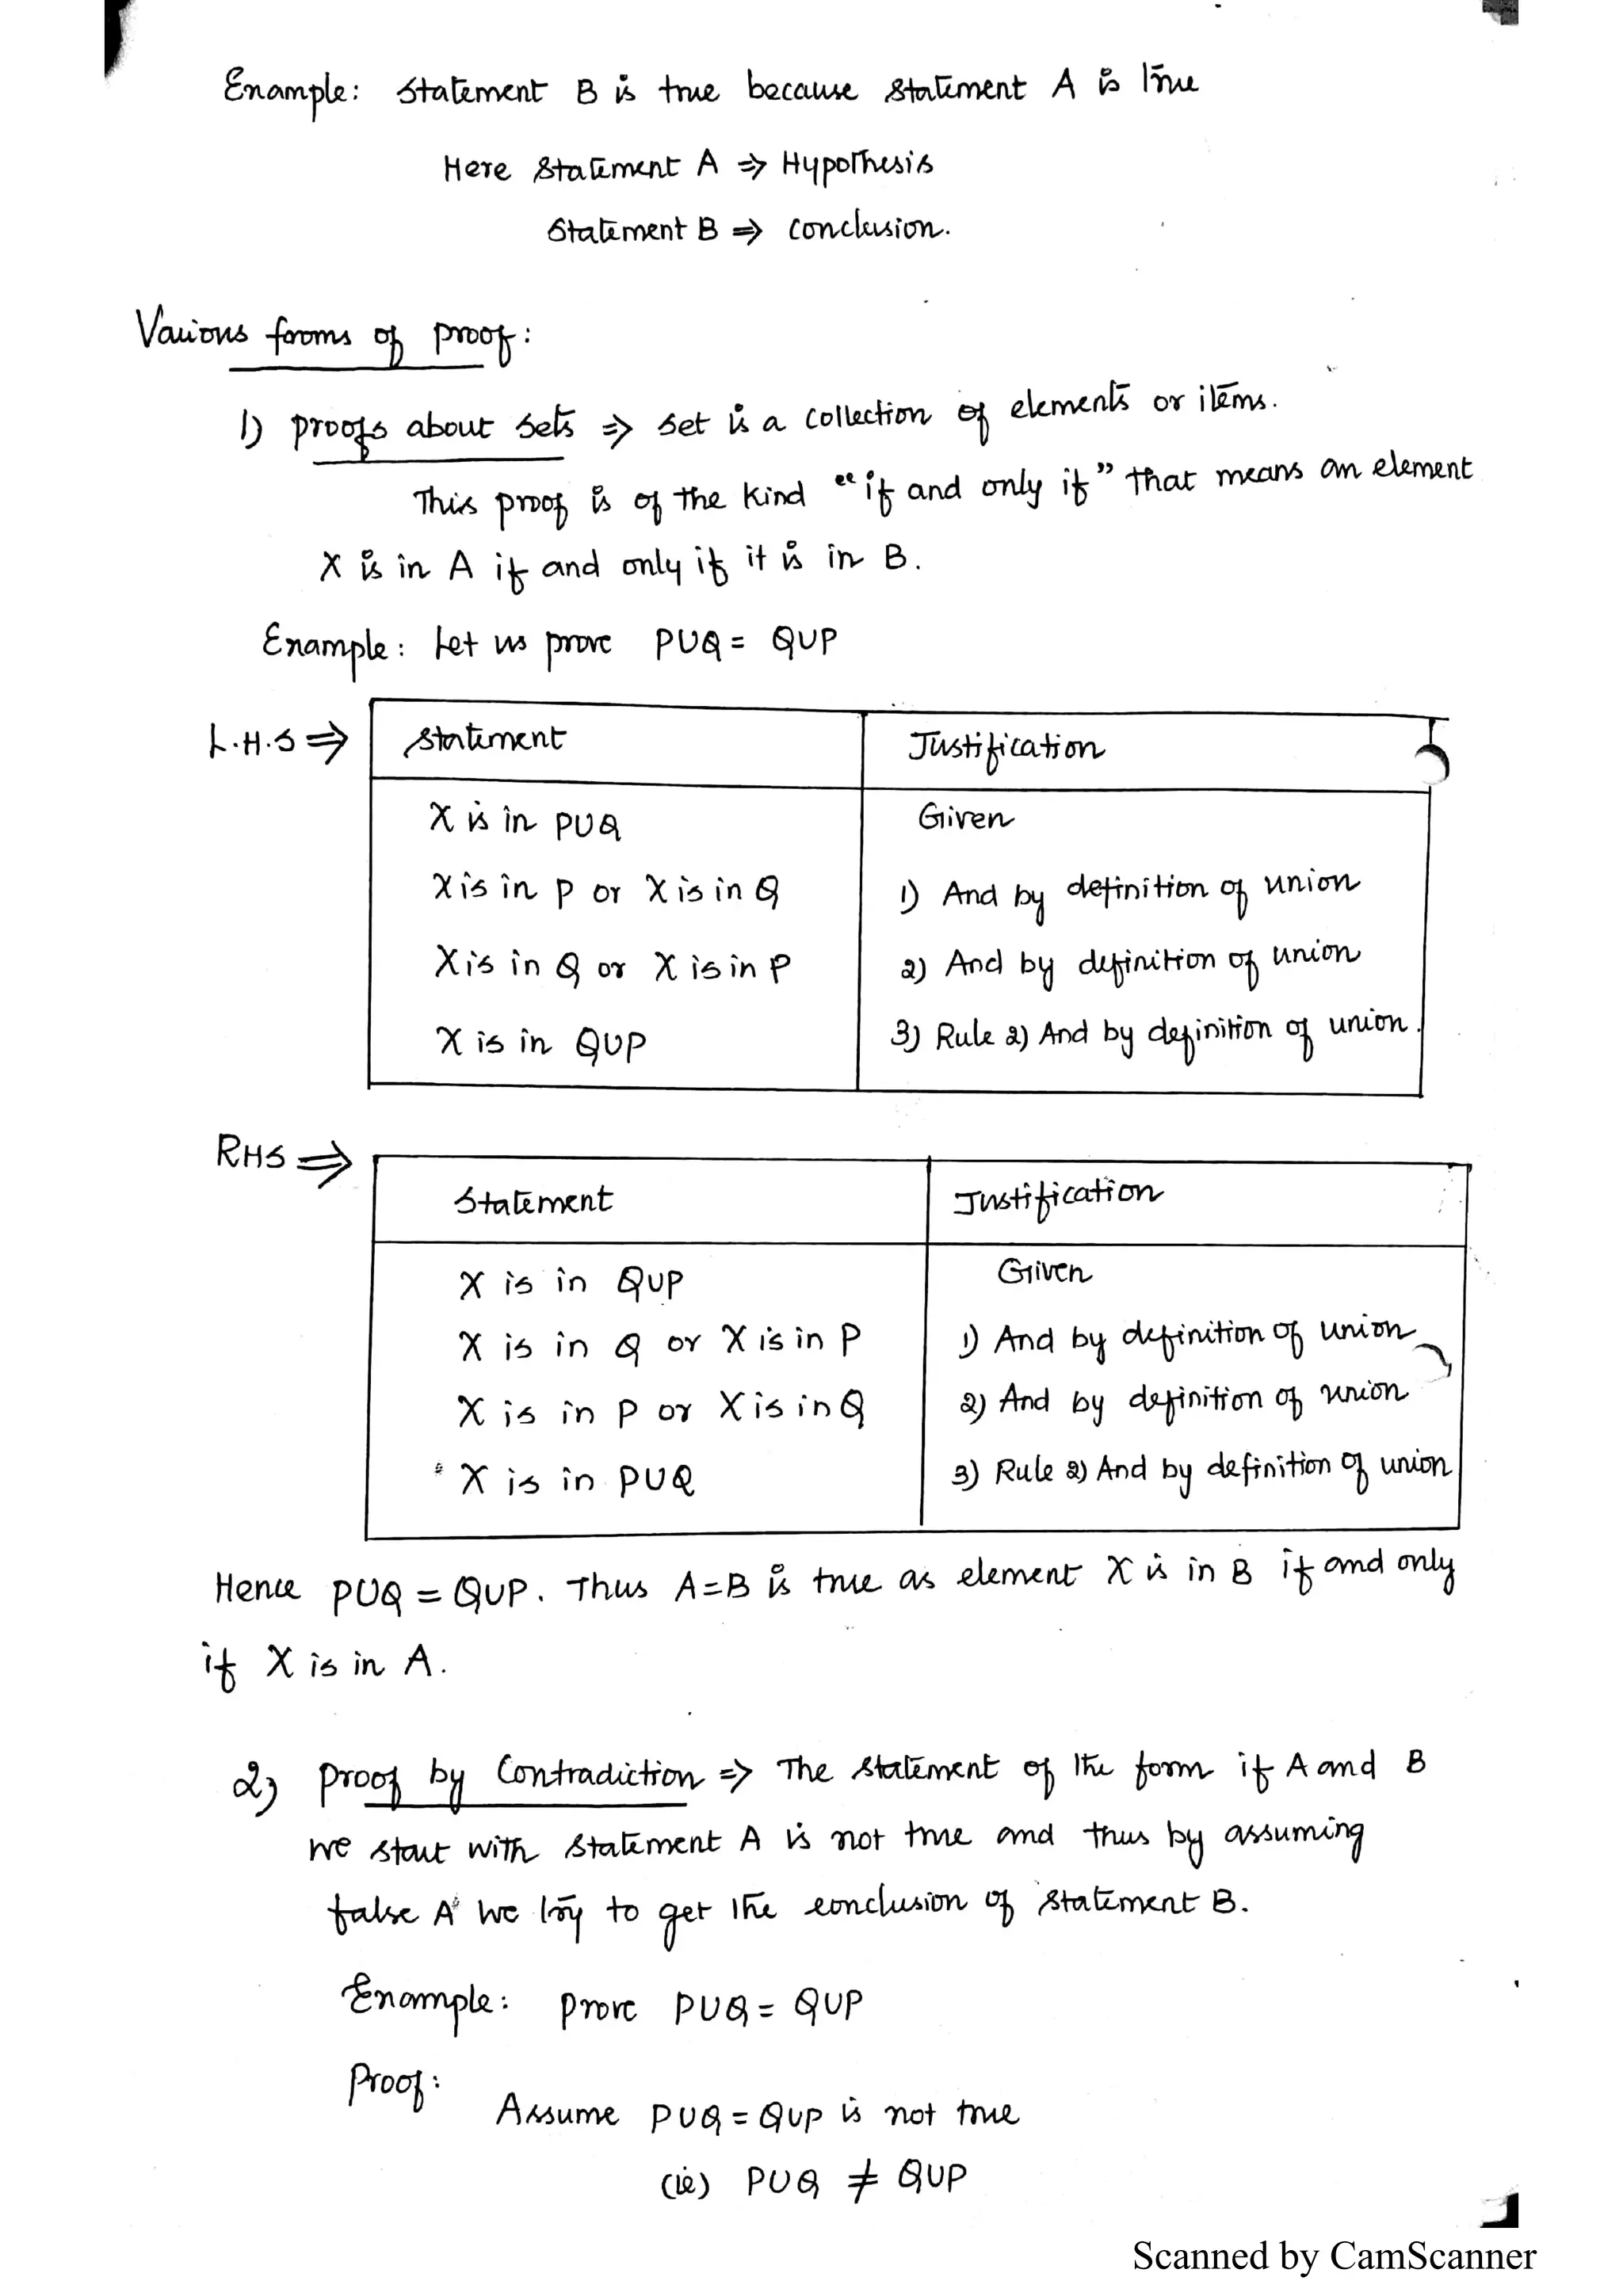 Example: Statement B is true because statement A is true
Here Statement A ⇒ Hypothesis
Statement B ⇒ conclusion.
Various forms of proof:
1) proofs about sets ⇒ set is a collection of elements or items.
This proof is of the kind "if and only if" that means an element
X is in A if and only if it is in B.
Example: Let us prove PUQ = QUP
L.H.S ⇒
Statement Justification
X is in PUQ Given
X is in P or X is in Q 1) And by definition of union
X is in Q or X is in P 2) And by definition of union
X is in QUP 3) Rule 2) And by definition of union.
RHS ⇒
Statement Justification
X is in QUP Given
X is in Q or X is in P 1) And by definition of union
X is in P or X is in Q 2) And by definition of union
X is in PUQ 3) Rule 2) And by definition of union
Hence PUQ = QUP. Thus A=B is true as element X is in B if and only
if X is in A.
2) Proof by Contradiction ⇒ The statement of the form if A and B
we start with statement A is not true and thus by assuming
false A we try to get the conclusion of statement B.
Example: prove PUQ = QUP
Proof:
Assume PUQ = QUP is not true
(ie) PUQ ≠ QUP
Scanned by CamScanner